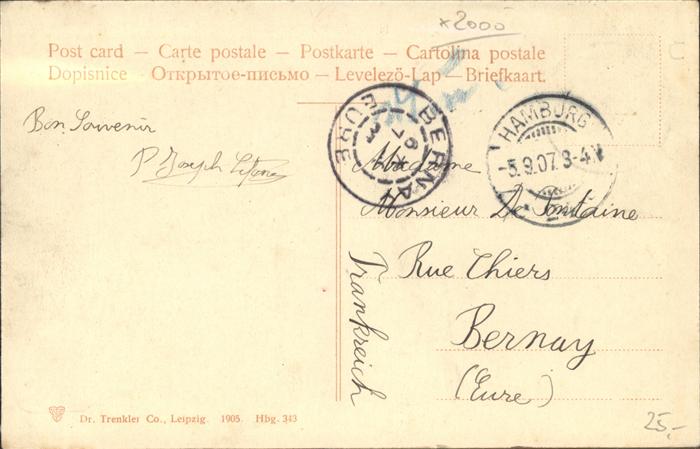 x2000
Post card – Carte postale – Postkarte – Cartolina postale
Dopisnice – Открытое-письмо – Levelező-Lap – Briefkaart.
Bon Souvenir
P Joseph
BERNAY
EURE
HAMBURG
-5.9.07.3-4N
Madame
Monsieur De Fontaine
Rue Thiers
Bernay
(Eure)
Frankreich
Dr. Trenkler Co., Leipzig. 1905. Hbg. 343
25,-